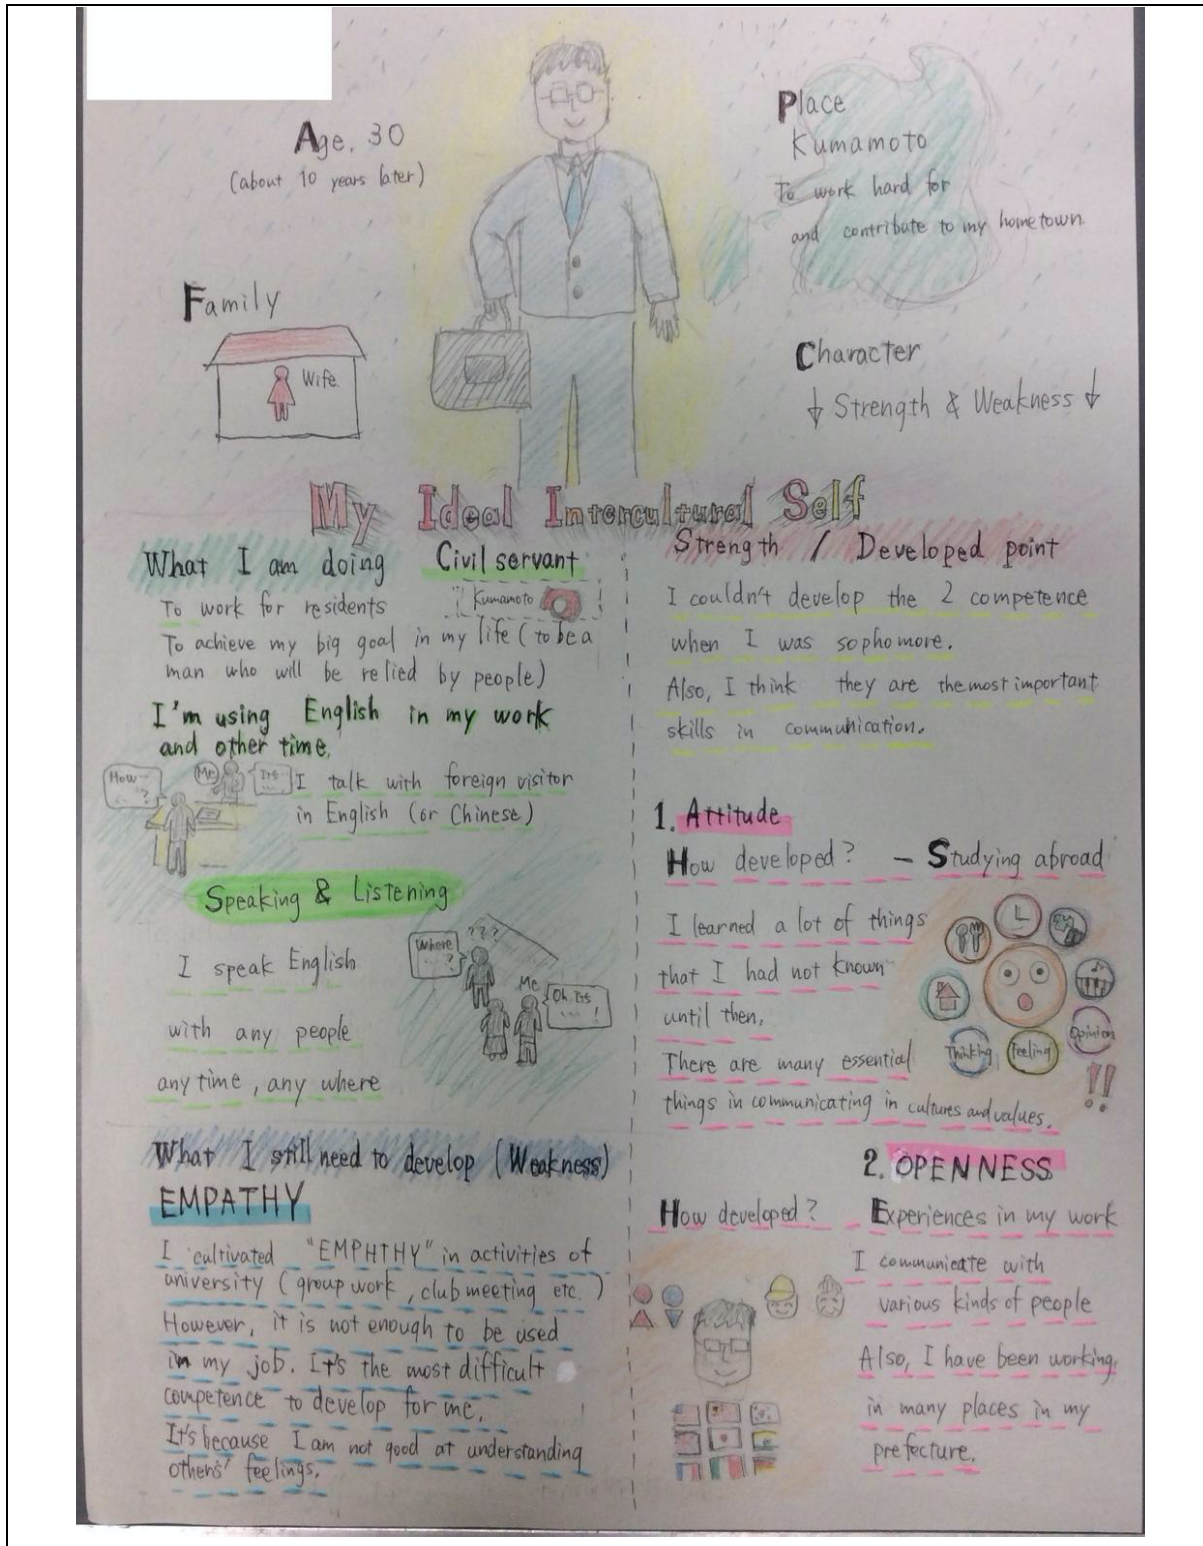 Age. 30
(about 10 years later)
Place
Kumamoto
To work hard for
and contribute to my hometown
Family
Wife.
Character
↓ Strength & Weakness ↓
My Ideal Intercultural Self
What I am doing Civil servant
To work for residents
Kumamoto
To achieve my big goal in my life (to be a
man who will be relied by people)
I'm using English in my work
and other time.
How ...
... ?
Me
Its
...
I talk with foreign visitor
in English (or Chinese)
Speaking & Listening
I speak English
with any people
any time, any where
Where
... ?
???
Me
Oh. Its
... !
What I still need to develop (Weakness)
EMPATHY
I cultivated "EMPHTHY" in activities of
university (group work, club meeting etc.)
However, it is not enough to be used
in my job. It's the most difficult
competence to develop for me.
It's because I am not good at understanding
others' feelings.
Strength / Developed point
I couldn't develop the 2 competence
when I was sophomore.
Also, I think they are the most important
skills in communication.
1. Attitude
How developed? - Studying abroad
I learned a lot of things
that I had not known
until then.
There are many essential
things in communicating in cultures and values.
Thinking
Feeling
Opinion
!!
2. OPENNESS
How developed? - Experiences in my work
I communicate with
various kinds of people
Also, I have been working,
in many places in my
prefecture.